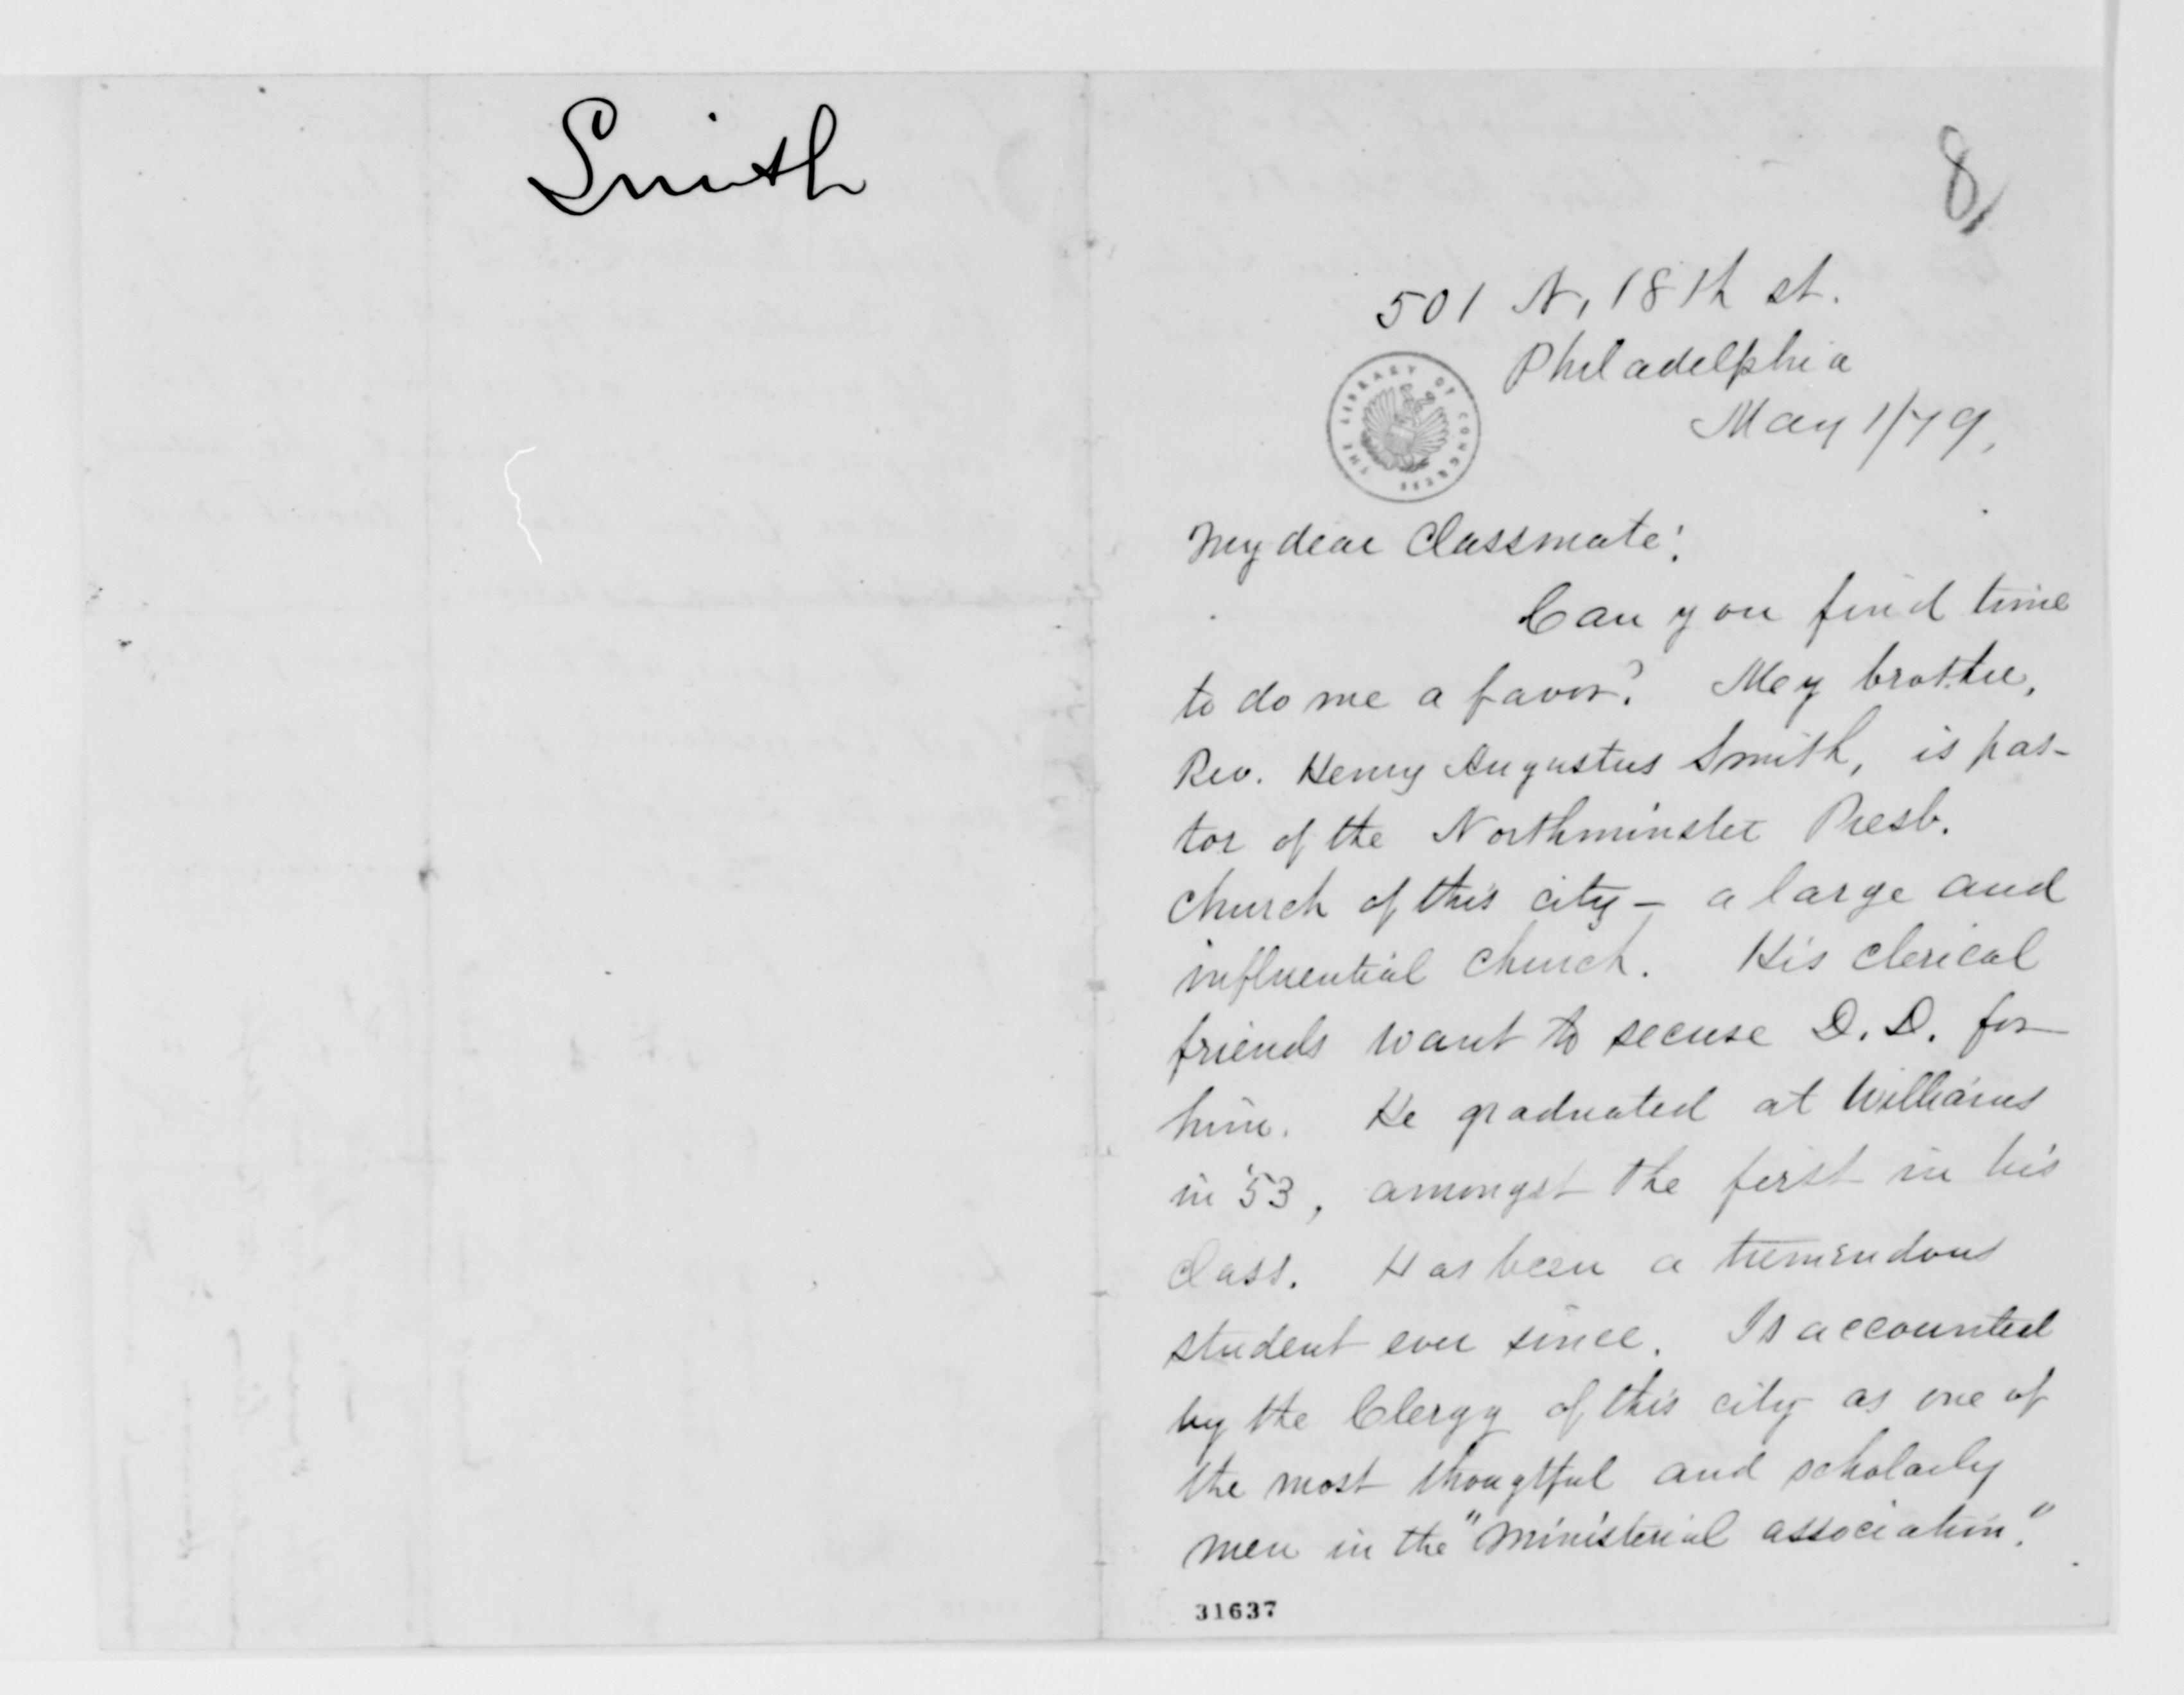 Smith
8
501 N, 18th st.
Philadelphia
May 1/79,
THE LIBRARY OF CONGRESS
My dear Classmate:
Can you find time
to do me a favor? My brother,
Rev. Henry Augustus Smith, is pas-
tor of the Northminster Presb.
Church of this city - a large and
influential church. His clerical
friends want to secure D.D. for
him. He graduated at Williams
in '53, amongst the first in his
class. Has been a tremendous
student ever since. Is accounted
by the Clergy of this city as one of
the most thougtful and scholarly
men in the "Ministerial association."
31637